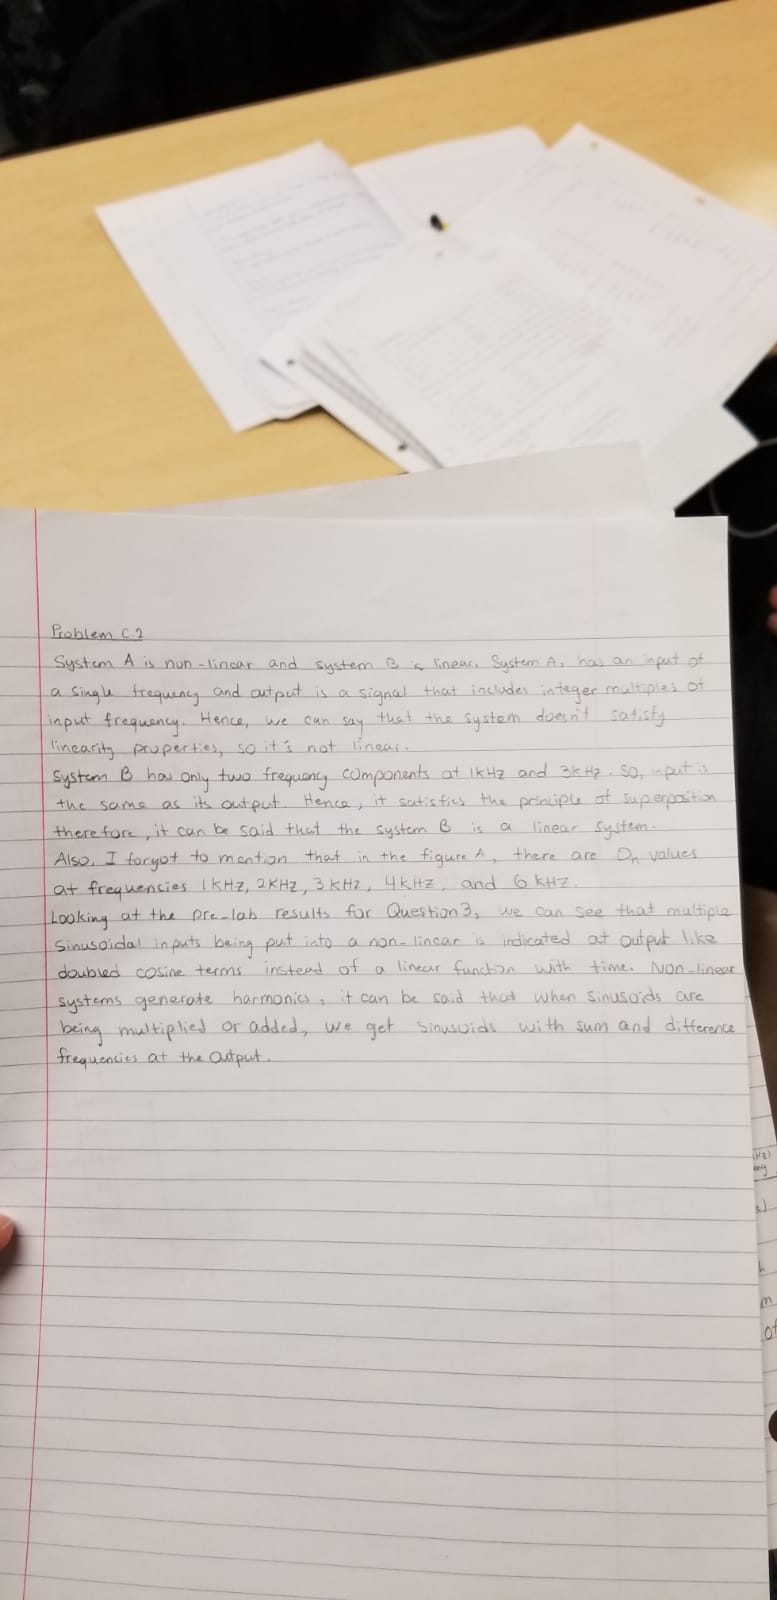 Problem C.2
System A is non-linear and system B is linear. System A, has an input of
a single frequency and output is a signal that includes integer multiples of
input frequency. Hence, we can say that the system doesn't satisfy
linearity properties, so it's not linear.
System B has only two frequency components at 1kHz and 3kHz. So, input is
the same as its output. Hence, it satisfies the principle of superposition
therefore, it can be said that the system B is a linear system.
Also, I forgot to mention that in the figure A, there are Dn values
at frequencies 1kHZ, 2KHZ, 3kHZ, 4kHZ, and 6kHZ.
Looking at the pre-lab results for Question 3, we can see that multiple
sinusoidal inputs being put into a non-linear is indicated at output like
doubled cosine terms instead of a linear function with time. Non-linear
systems generate harmonics, it can be said that when sinusoids are
being multiplied or added, we get sinusoids with sum and difference
frequencies at the output.